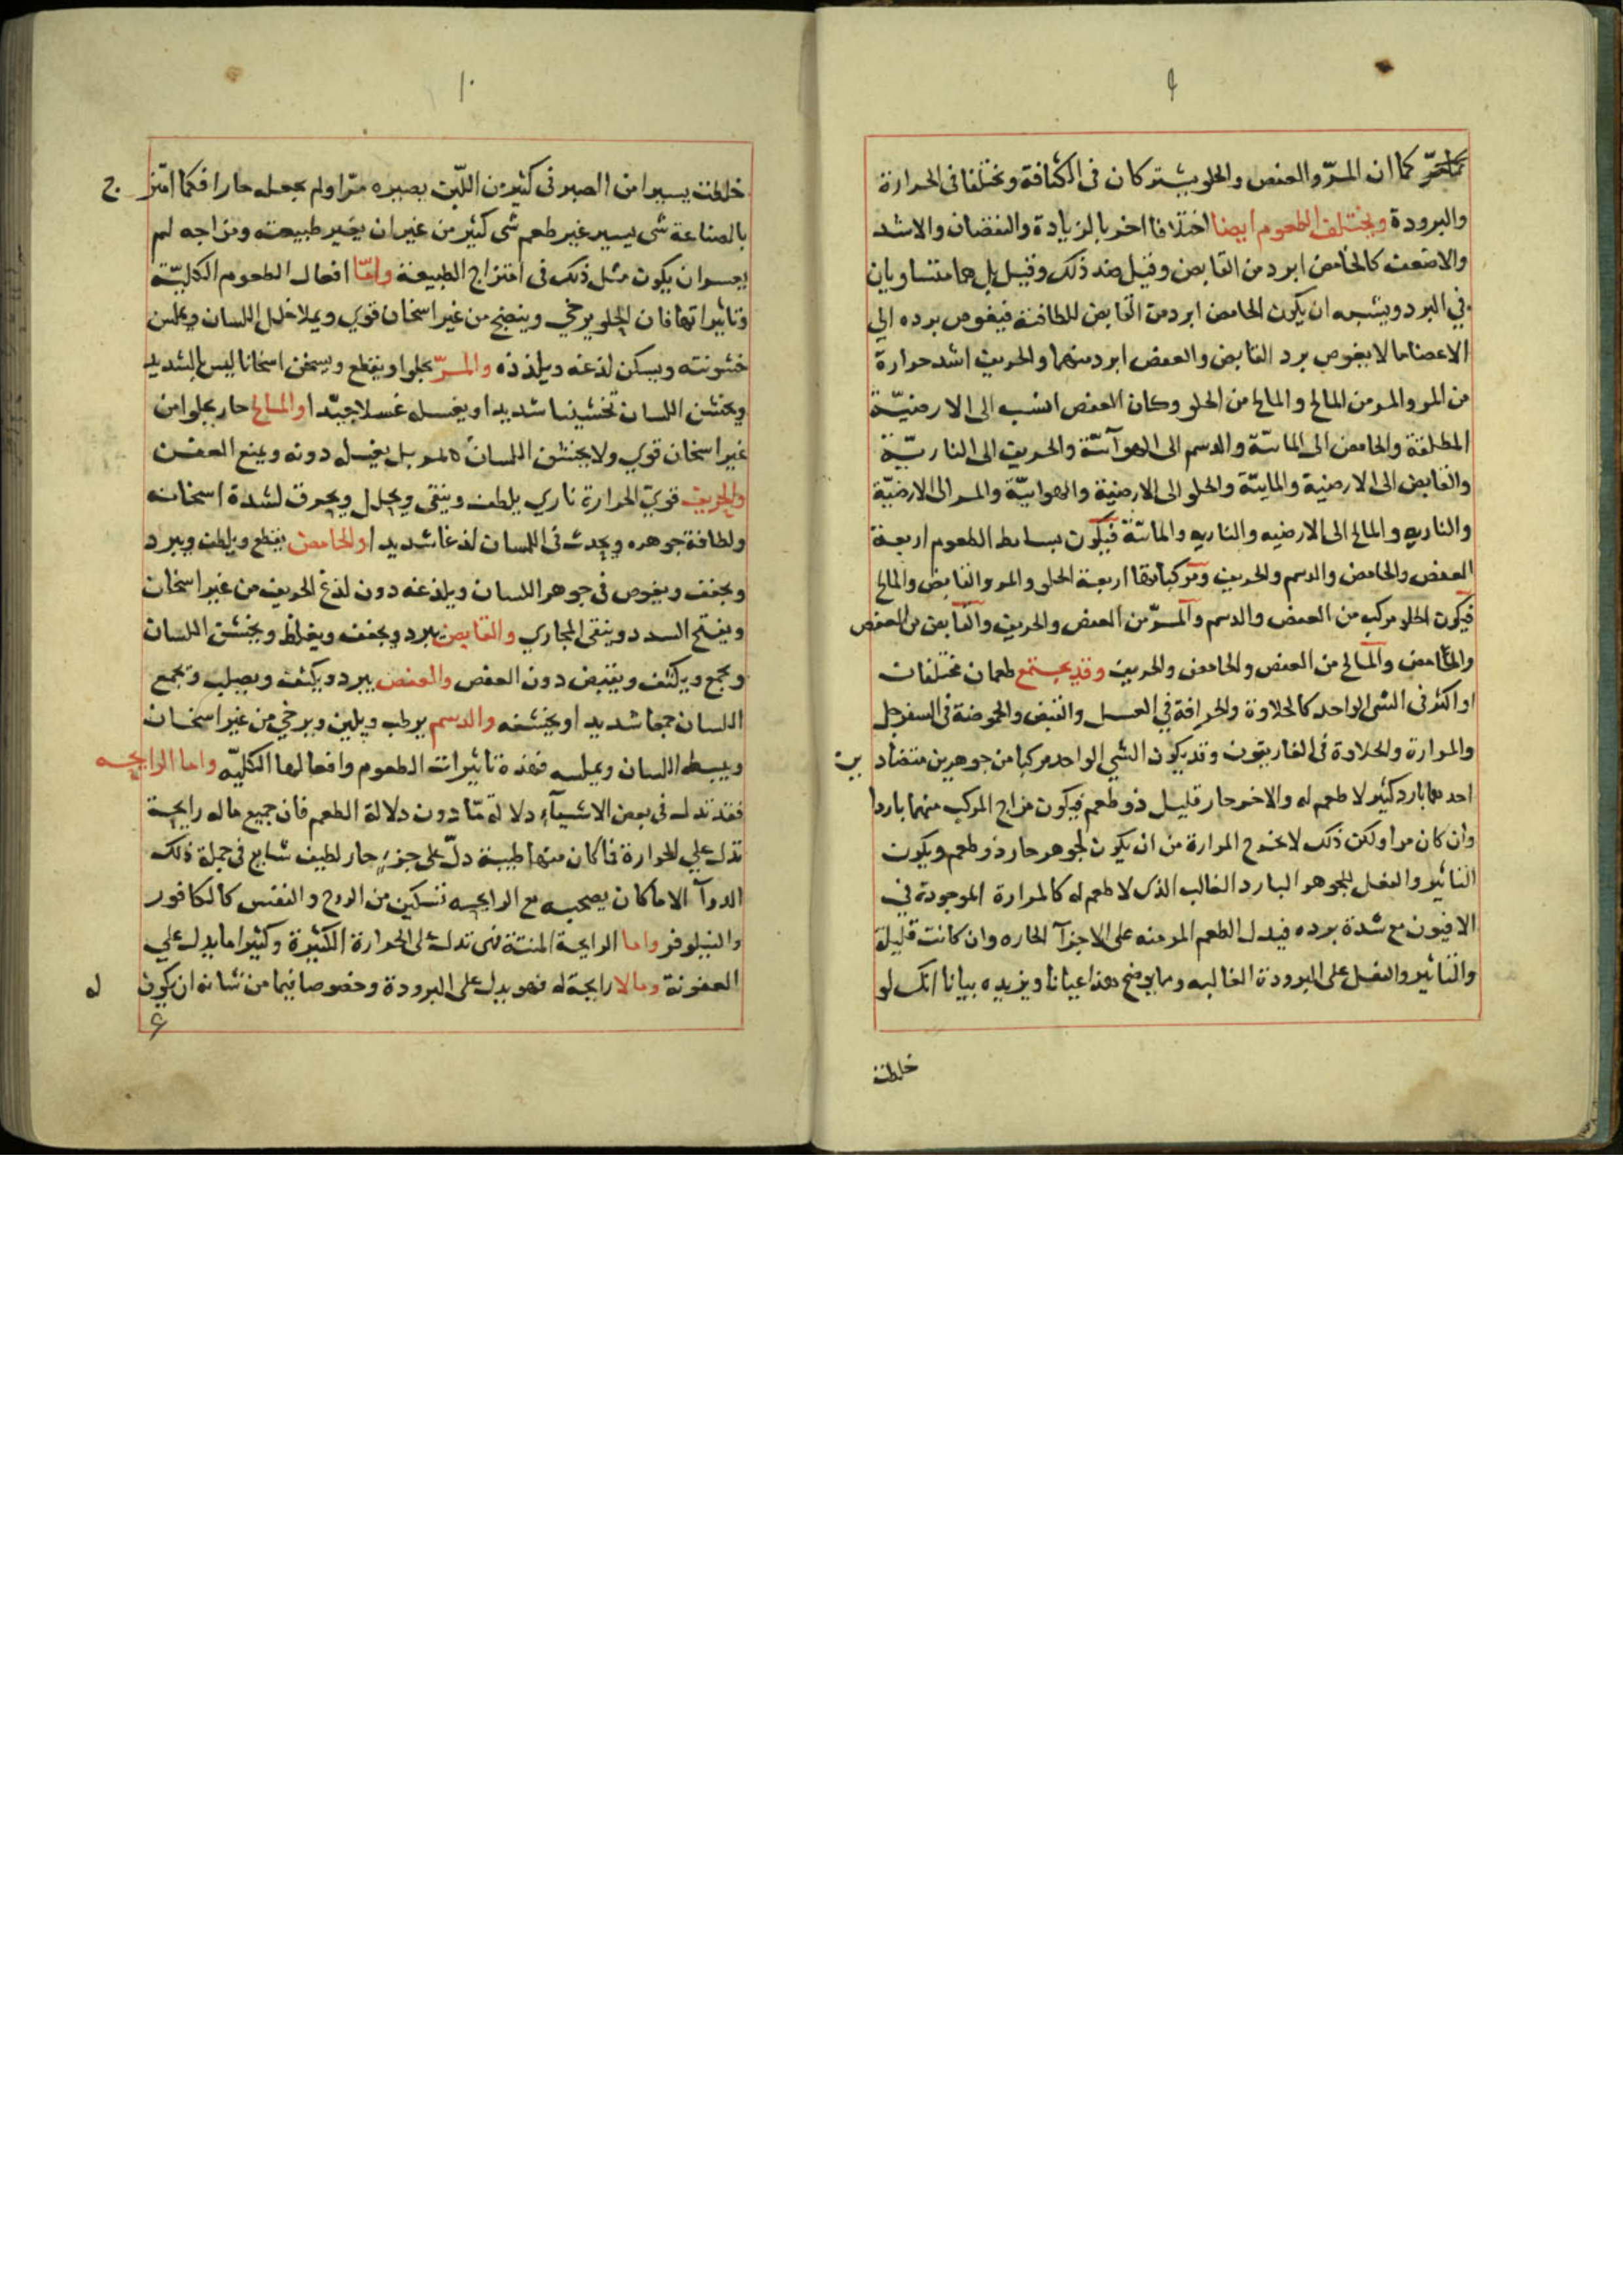 ٩
كما ان المرّ والعفص والحلو يشتركان فى الكثافة ويختلفا فى الحرارة
والبرودة ويختلف الطعوم ايضا اختلافا اخر بالزيادة والنقصان والاشد
والاضعف كالحامض ابرد من القابض وقيل ضد ذلك وقيل بل هما متساويان
في البرد ويشبه ان يكون الحامض ابرد من القابض للطافته فيغوص برده الي
الاعضا ما لا يغوص برد القابض والعفص ابرد منهما والحريف اشد حرارة
من المر والمر من المالح والمالح من الحلو وكان العفص انسب الى الارضيّة
المطلقة والحامض الى المائيّة والدسم الى الهوآئيّة والحريف الى الناريّة
والقابض الى الارضية والمايية والحلو الى الارضية والهوايية والمر الى الارضيّة
والناريه والمالح الى الارضيه والناريه والمائيّة فيكون بسايط الطعوم اربعة
العفص والحامض والدسم والحريف ومركباتها اربعة الحلو والمر والقابض والمالح
فيكون الحلو مركب من العفص والدسم والمرّ من العفص والحريف والقابض من العفص
والحامض والمالح من العفص والحامض والحريف وقد يجتمع طعمان مختلفان
او اكثر فى الشى الواحد كالحلاوة والحرافة في العسل والقبض والحموضة فى السفرجل
والمرارة والحلاوة فى الغاريقون وقد يكون الشي الواحد مركبا من جوهرين متضادين
احدهما بارد كثير لا طعم له والاخر حار قليل ذو طعم فيكون مزاج المركب منهما باردا
وان كان مرا ولكن ذلك لا يخرج المرارة من ان يكون لجوهر حار ذو طعم ويكون
التاثير والفعل للجوهر البارد الغالب الذى لا طعم له كالمرارة الموجودة في
الافيون مع شدة برده فيدل الطعم المر منه على الاجزآ الحاره وان كانت قليلة
والتاثير والفعل على البرودة الغالبه ومما يوضح هذا عيانا ويزيده بيانا انك لو
خلطت
١٠
خلطت يسيرا من الصبر فى كثير من اللبن يصيره مرّا ولم يجعله حارا فكما امتزج
بالصناعة شى يسير غير طعم شى كثير من غير ان يغير طبيعته ومزاجه لم
يعسر ان يكون مثل ذلك فى امتزاج الطبيعة وامّا افعال الطعوم الكليّة
وتاثيراتها فان الحلو يرخي وينضج من غير اسخان قوي ويملا خلل اللسان ويملس
خشونته ويسكن لذعه ويلذذه والمرّ يجلوا ويقطع ويسخن اسخانا ليس بالشديد
ويخشن اللسان تخشينا شديدا ويغسله غسلا جيّدا والمالح حار يجلوا من
غير اسخان قوي ولا يخشن اللسان كالمر بل يغسل دونه ويمنع العفن
والحريف قويّ الحرارة ناري يلطف وينقى ويحلل ويحرق لشدة اسخانه
ولطافة جوهره ويحدث فى اللسان لذعا شديدا والحامض يقطع ويلطف ويبرد
ويجفف ويغوص فى جوهر اللسان ويلذعه دون لذع الحريف من غير اسخان
ويفتح السدد وينقى المجاري والقابض يبرد ويجفف ويغلظ ويخشن اللسان
ويجمع ويكثف ويقبض دون العفص والعفص يبرد ويكثف ويصلب ويجمع
اللسان جمعا شديدا ويخشنه والدسم يرطب ويلين ويرخي من غير اسخان
ويبسط اللسان ويملسه فهذه تاثيرات الطعوم وافعالها الكليّه واما الرايحه
فقد تدل فى بعض الاشيآء دلالة مّا دون دلالة الطعم فان جميع ما له رايحة
تدل علي الحرارة فما كان منها طيبة دلّ على جزء حار لطيف شايع فى جملة ذلك
الدوآ الا ما كان يصحبه مع الرايحه تسكين من الروح والنفس كالكافور
والنيلوفر واما الرايحة المنتنة فهى تدل على الحرارة الكثيرة وكثيرا ما يدل علي
العفونة وما لا رايحة له فهو يدل على البرودة وخصوصا فيما من شانه ان يكون له